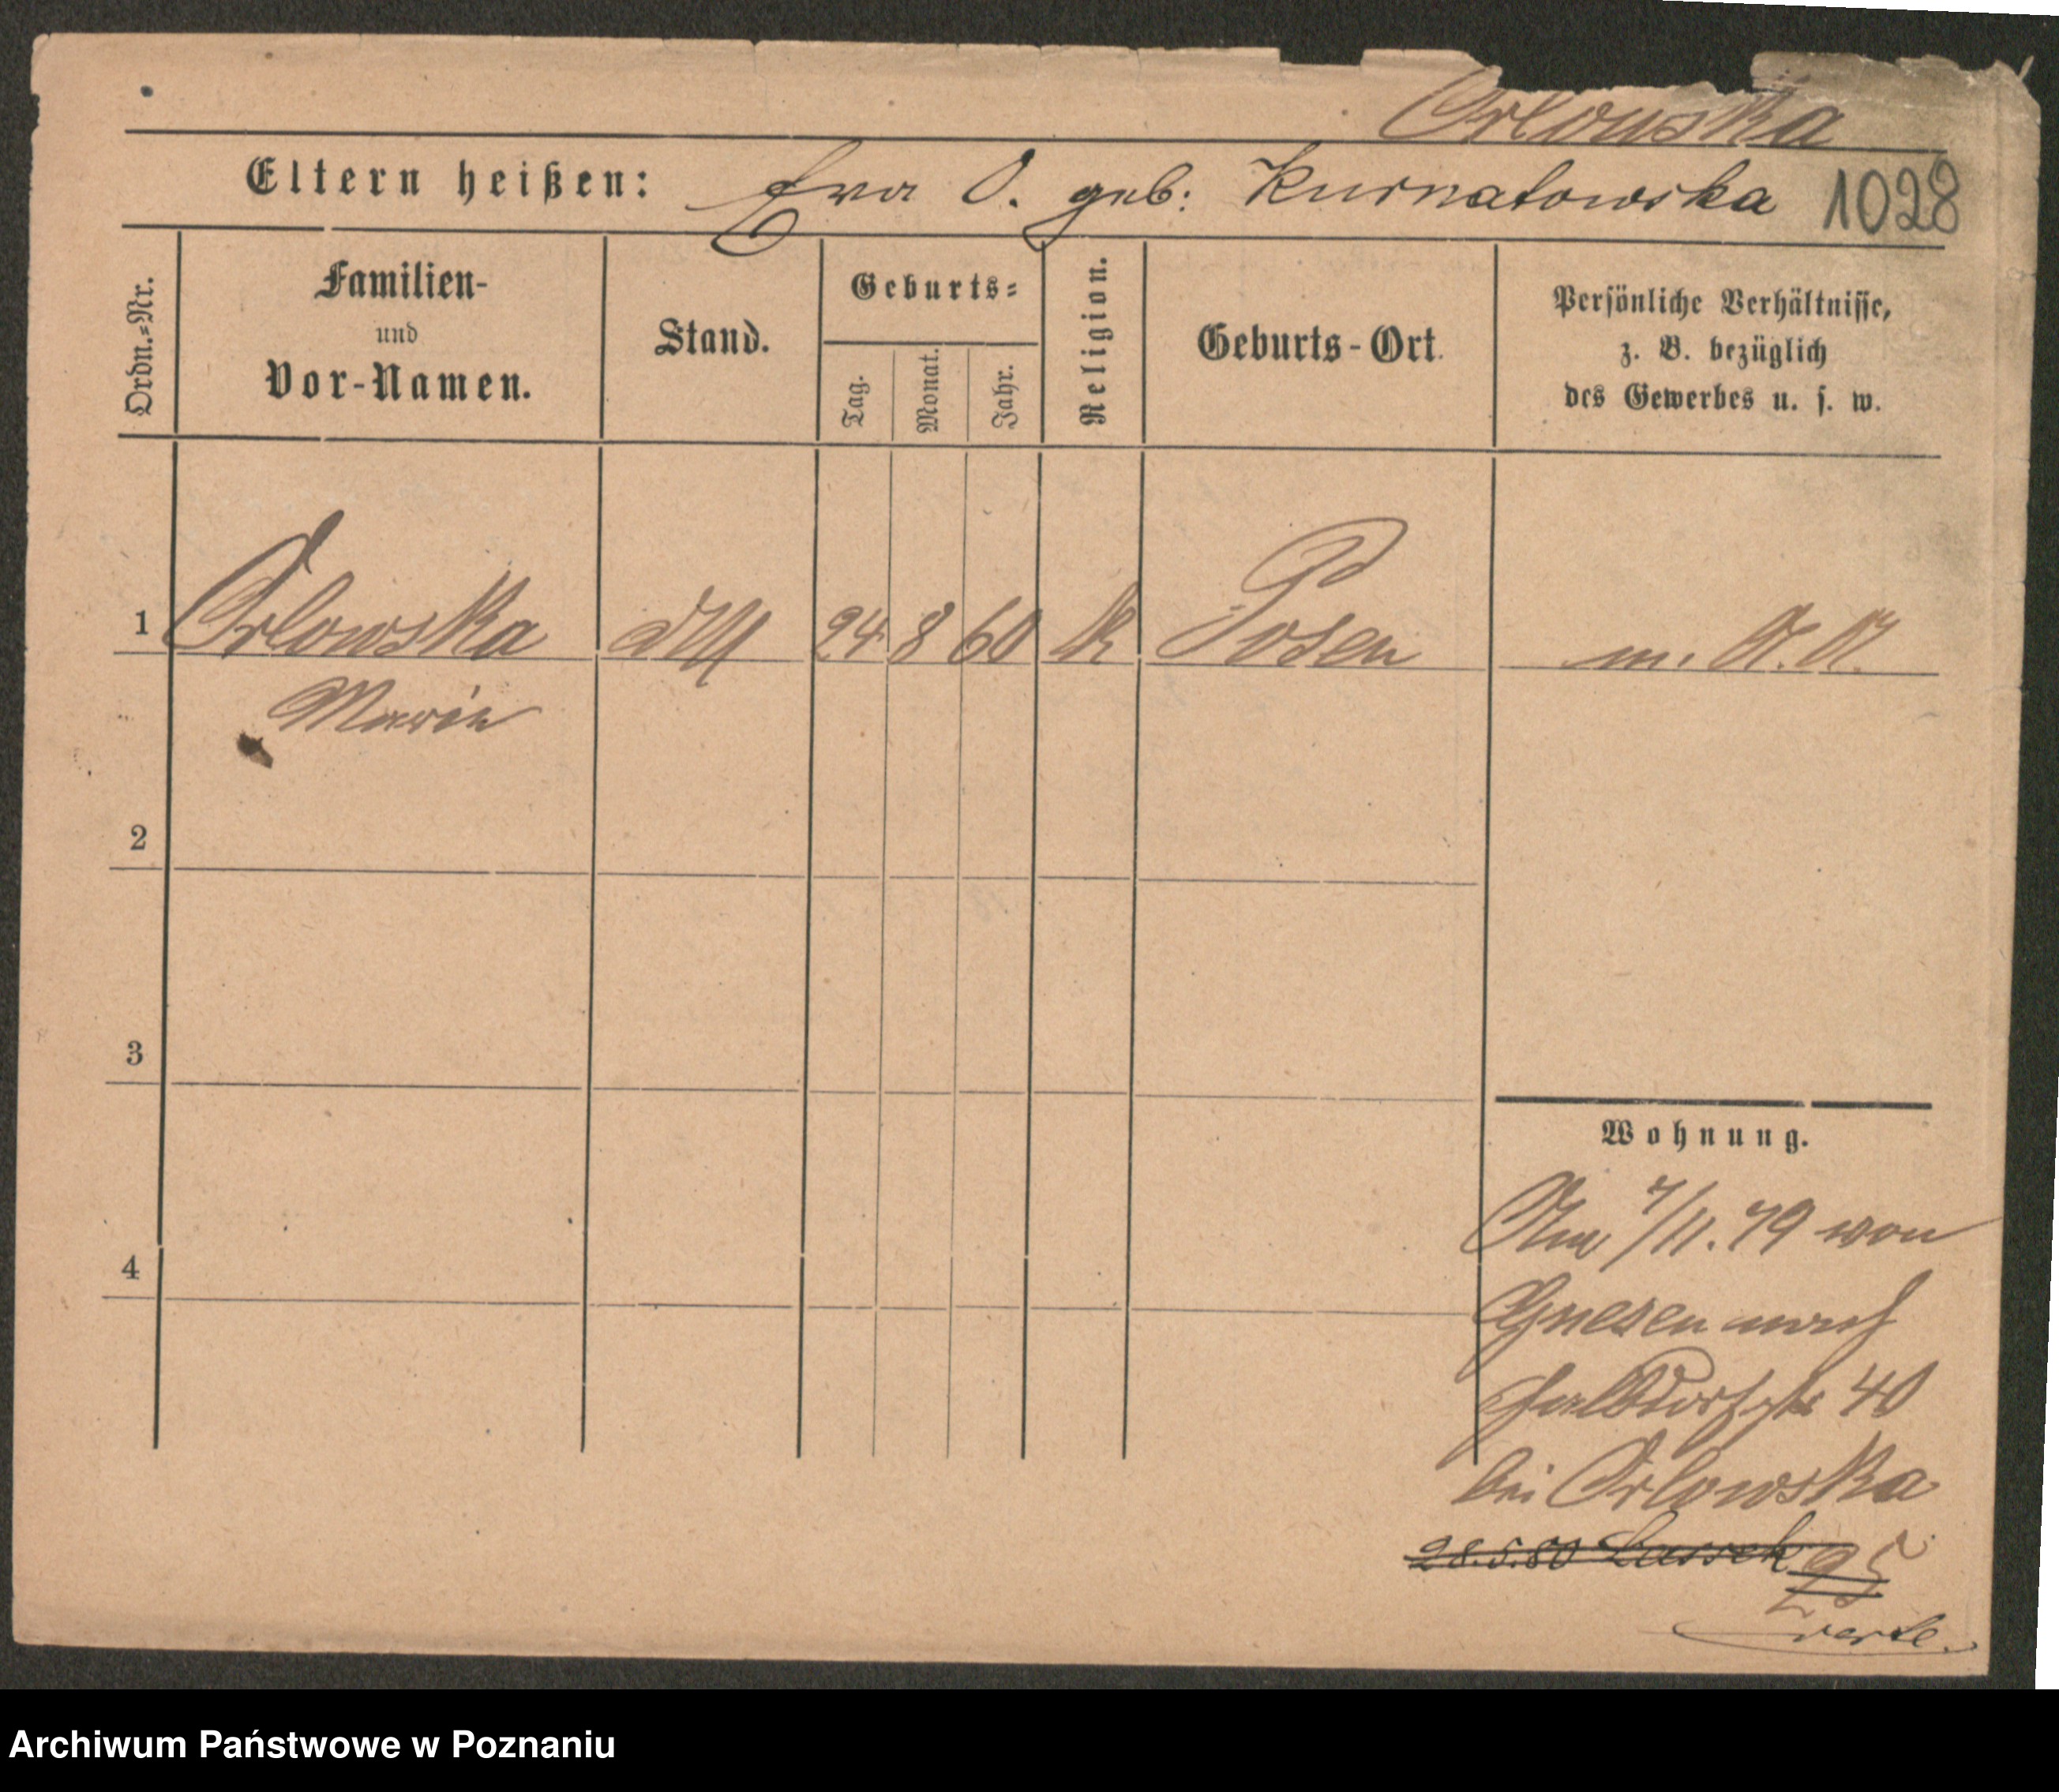 Orlowska
Eltern heißen: Eva O. geb: Kurnatowska 1028
Ordn.=Nr.
Familien-
und
Vor-Namen.
Stand.
Geburts=
Tag.
Monat.
Jahr.
Religion.
Geburts-Ort.
Persönliche Verhältnisse,
z. B. bezüglich
des Gewerbes u. s. w.
1 Orlowska 24 8 60 k Posen m. A. A.
Marie
2
3
4
Wohnung.
7/11. 79 von
Gnesen nach
Halbdorfstr 40
bei Orlowska
28.5.80
verte.
Archiwum Państwowe w Poznaniu